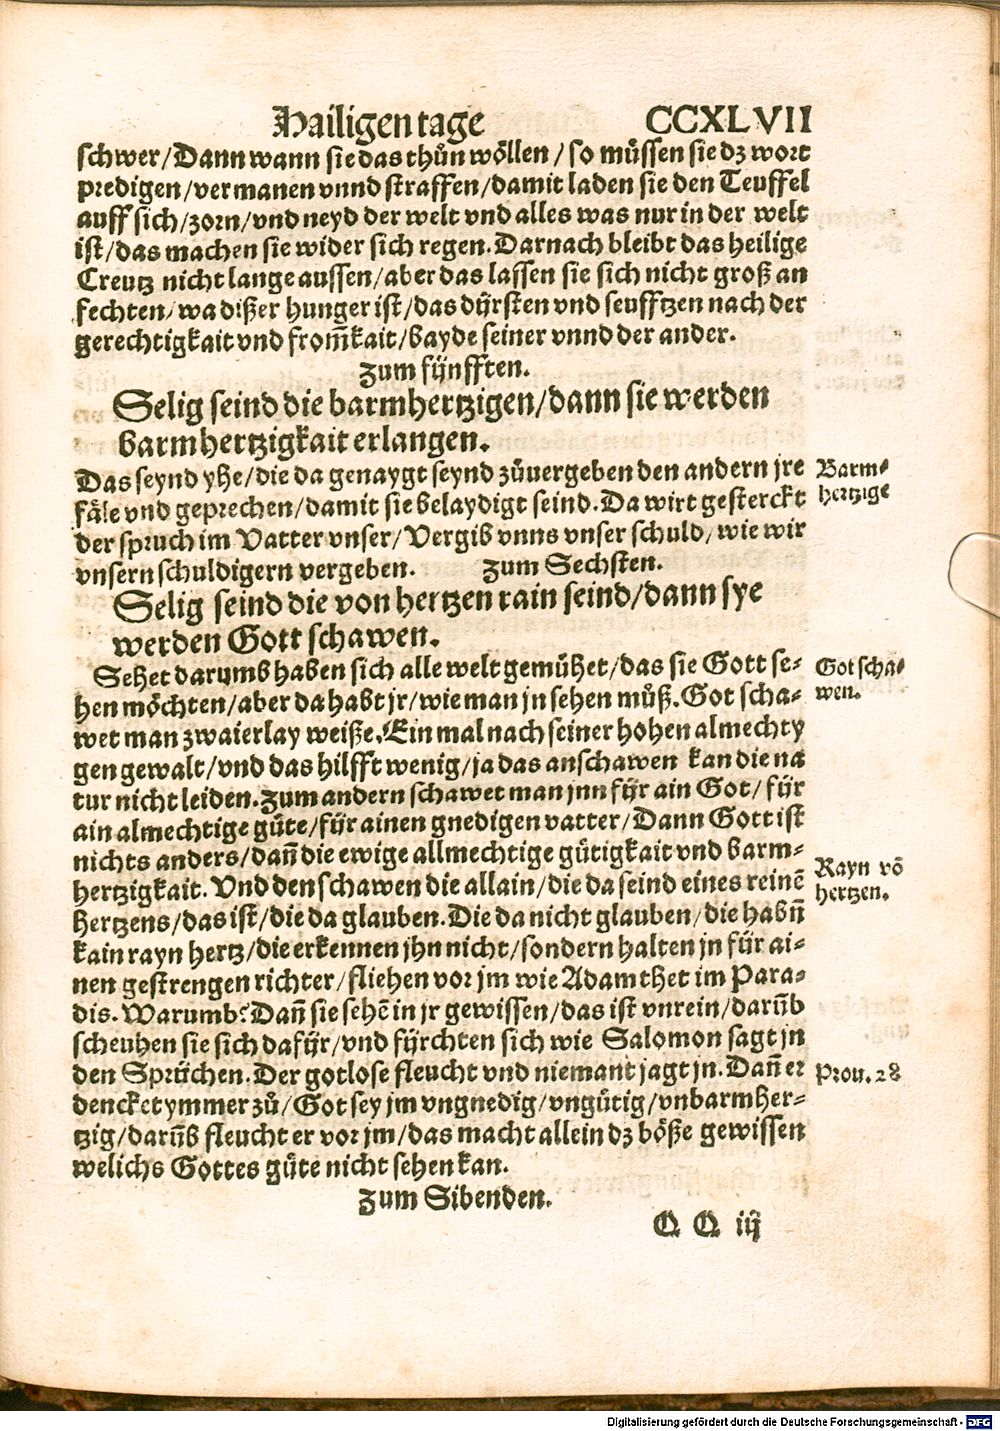 Hailigen tage CCXLVII
schwer/Dann wann sie das thůn wöllen/so müssen sie dz wort
predigen/vermanen vnnd straffen/damit laden sie den Teuffel
auff sich/zorn/vnd neyd der welt vnd alles was nur in der welt
ist/das machen sie wider sich regen. Darnach bleibt das heilige
Creutz nicht lange aussen/aber das lassen sie sich nicht groß an
fechten/wa dißer hunger ist/das dürsten vnd seufftzen nach der
gerechtigkait vnd from̃kait/bayde seiner vnnd der ander.
Zum fünfften.
Selig seind die barmhertzigen/dann sie werden
barmhertzigkait erlangen.
Das seynd yhe/die da genaygt seynd zůuergeben den andern jre
fäle vnd geprechen/damit sie belaydigt seind. Da wirt gesterckt
der spruch im Vatter vnser/Vergib vnns vnser schuld/wie wir
vnsern schuldigern vergeben. Zum Sechsten.
Barm-
hertzige
Selig seind die von hertzen rain seind/dann sye
werden Gott schawen.
Sehet darumb haben sich alle welt gemühet/das sie Gott se-
hen möchten/aber da habt jr/wie man jn sehen můß. Got scha-
wet man zwaierlay weiße. Ein mal nach seiner hohen almechty
gen gewalt/vnd das hilfft wenig/ja das anschawen kan die na
tur nicht leiden. Zum andern schawet man jnn für ain Got/für
ain almechtige güte/für ainen gnedigen vatter/Dann Gott ist
nichts anders/dañ die ewige allmechtige gütigkait vnd barm-
hertzigkait. Vnd den schawen die allain/die da seind eines reinẽ
Hertzens/das ist/die da glauben. Die da nicht glauben/die habñ
kain rayn hertz/die erkennen jhn nicht/sondern halten jn für ai-
nen gestrengen richter/fliehen vor jm wie Adam thet im Para-
dis. Warumb? Dañ sie sehẽ in jr gewissen/das ist vnrein/darũb
scheuhen sie sich dafür/vnd fürchten sich wie Salomon sagt jn
den Sprüchen. Der gotlose fleucht vnd niemant jagt jn. Dañ er
dencket ymmer zů/Got sey jm vngnedig/vngütig/vnbarmher-
tzig/darũb fleucht er vor jm/das macht allein dz böße gewissen
welichs Gottes güte nicht sehen kan.
Got scha-
wen.
Rayn võ
hertzen.
Prou. 28
Zum Sibenden.
Q Q iij
Digitalisierung gefördert durch die Deutsche Forschungsgemeinschaft - DFG